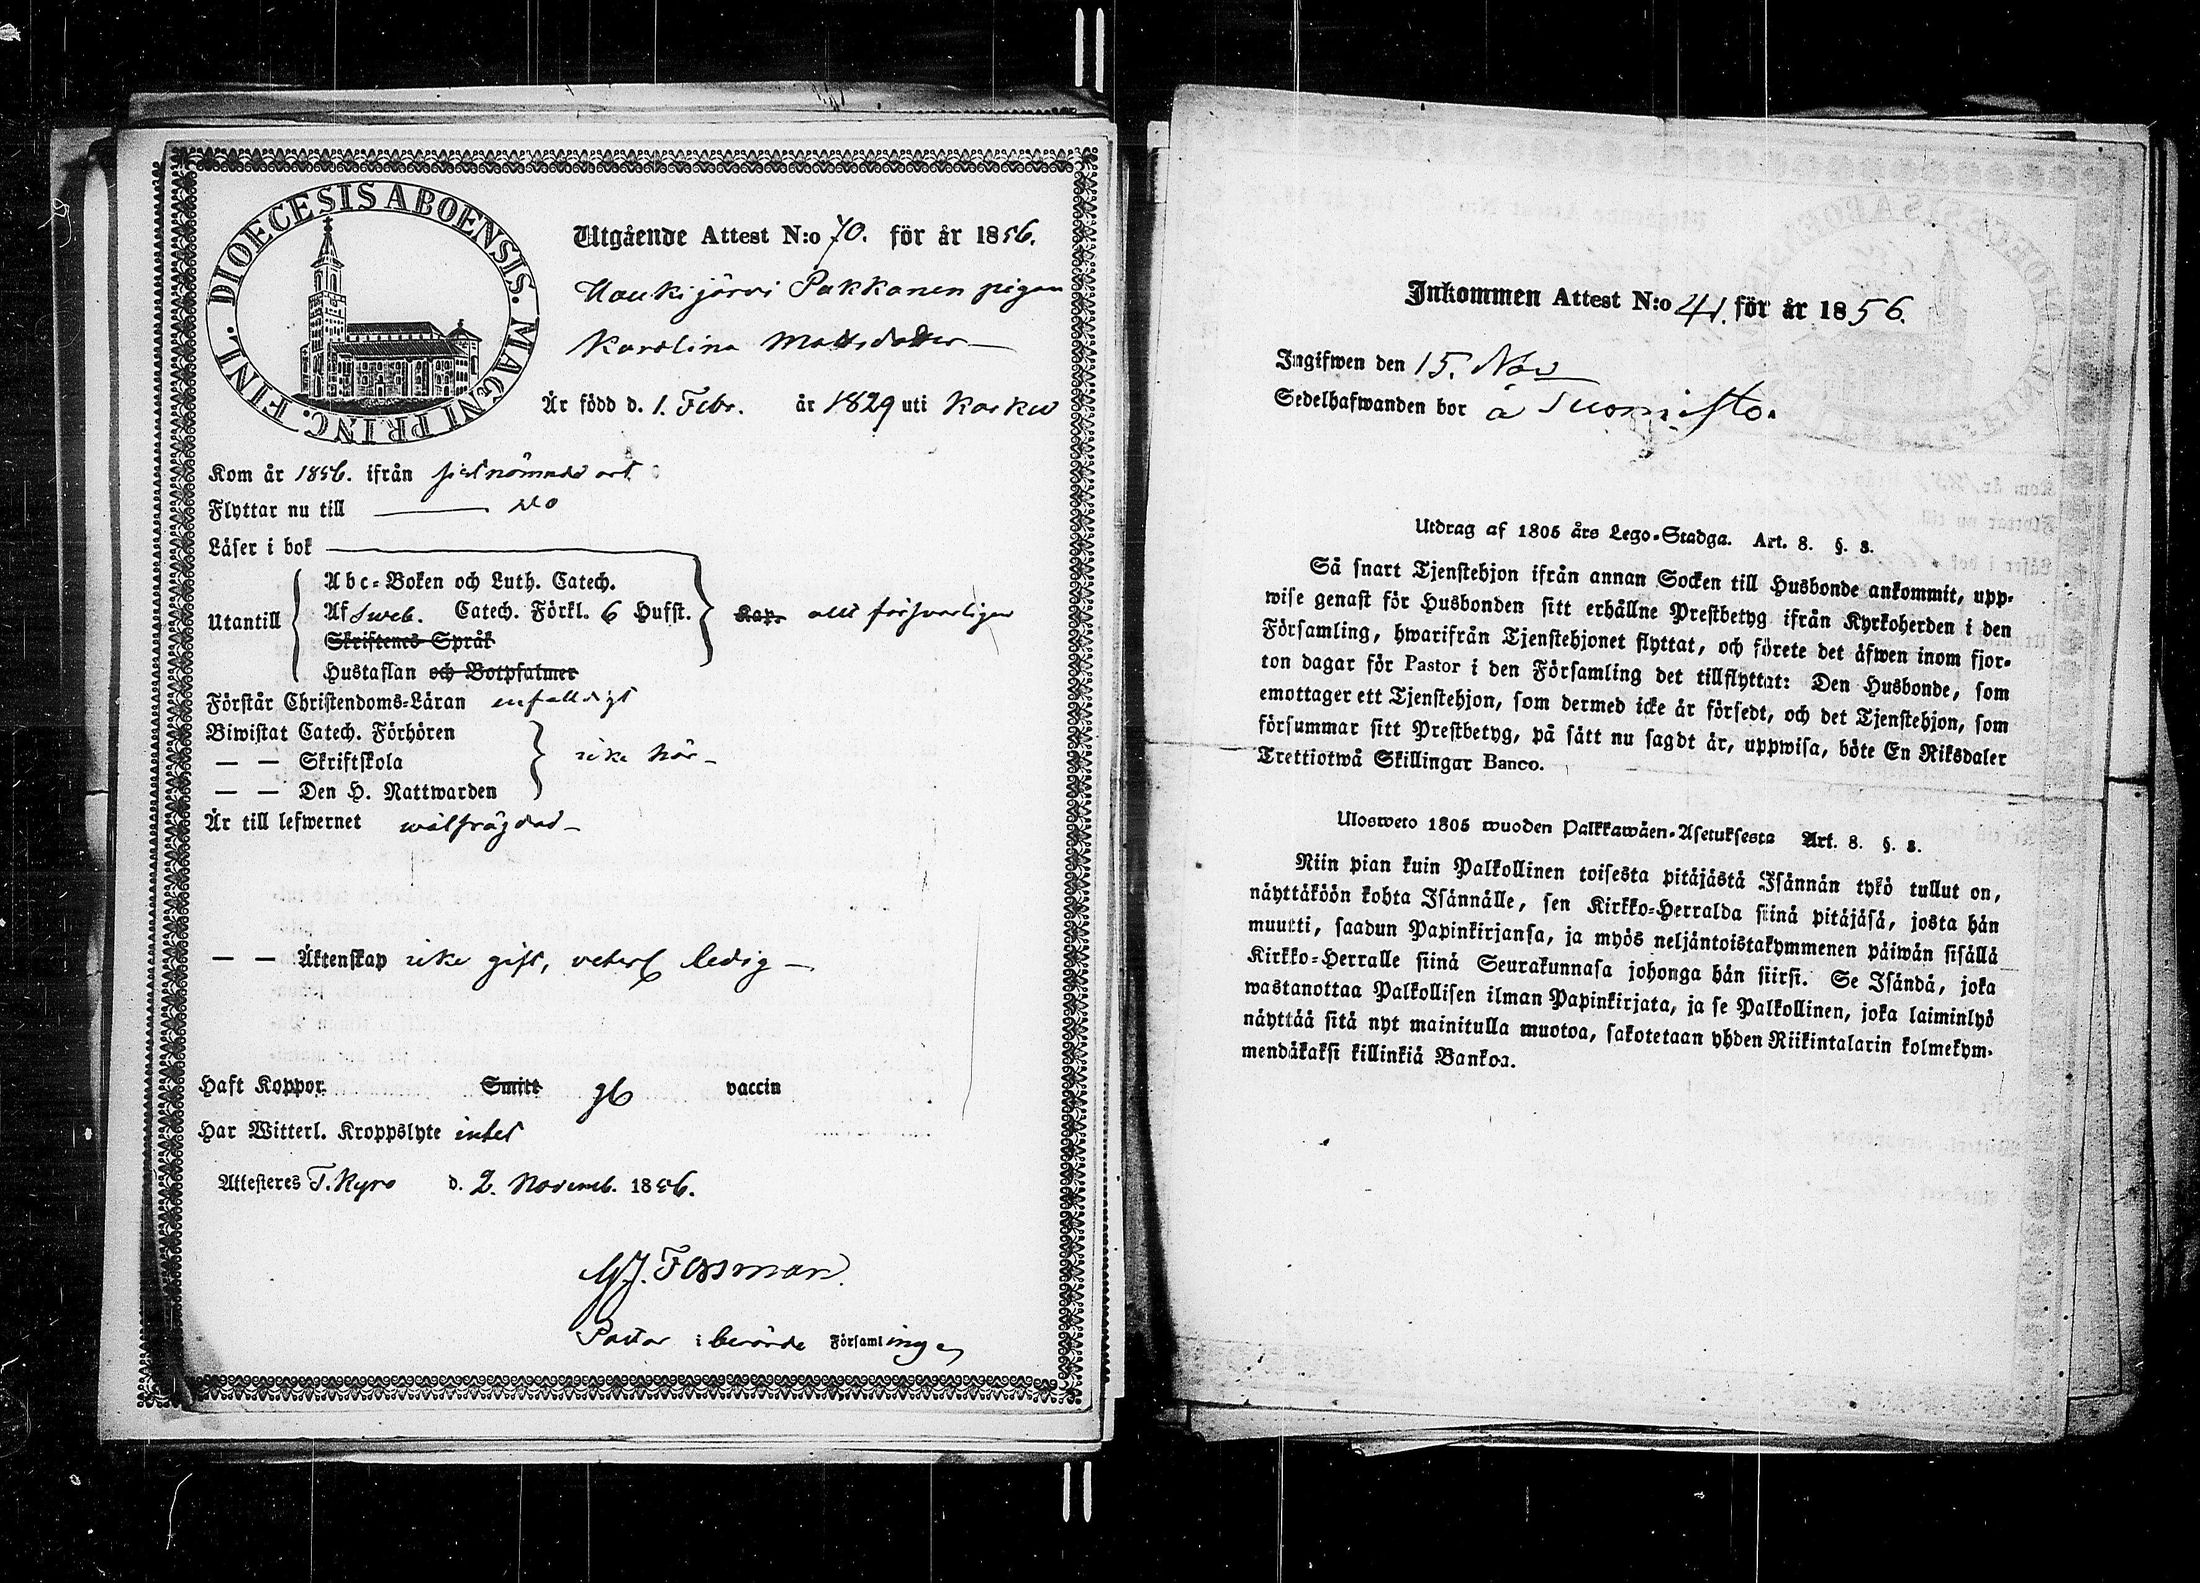 DIOECESIS ABOENSIS. MAGNI PRINC. FINL.
Utgående Attest N:o 70. för år 1856.
Haukijärvi Pakkanen pigan
Karolina Mattsdotter
Är född d. 1. Febr. år 1829 uti Karku
Kom år 1856. ifrån sistnämnde ort
Flyttar nu till — do
Läser i bok
Utantill
Abc-Boken och Luth. Catech.
Af Sweb. Catech. Förkl. 6 Hufst.
Kap. allt försvarligen
Skriftenes Språk
Hustaflan och Botpsalmer
Förstår Christendoms-Läran enfaldigt
Biwistat Catech. Förhören
— — Skriftskola
icke här —
— — Den H. Nattwarden
Är till lefwernet wälfrägdad —
— — Äktenskap icke gift, ledig —
Haft Koppor Smitt vaccin
Har Witterl. Kroppslyte intet
Attesteres T. Kyro d. 2. Novemb. 1856.
Pastor i berörde Församlingen
Inkommen Attest N:o 41. för år 1856.
Ingifwen den 15. Nov
Sedelhafwanden bor å Suomisto.
Utdrag af 1805 års Lego-Stadga. Art. 8. §. 3.
Så snart Tjenstehjon ifrån annan Socken till Husbonde ankommit, upp-
wise genast för Husbonden sitt erhållne Prestbetyg ifrån Kyrkoherden i den
Församling, hwarifrån Tjenstehjonet flyttat, och förete det äfwen inom fjor-
ton dagar för Pastor i den Församling det tillflyttat: Den Husbonde, som
emottager ett Tjenstehjon, som dermed icke är försedt, och det Tjenstehjon, som
försummar sitt Prestbetyg, på sätt nu sagdt är, uppwisa, böte En Riksdaler
Trettiotwå Skillingar Banco.
Ulosweto 1805 wuoden Palkkawäen-Asetuksesta Art. 8. §. 3.
Niin pian kuin Palkollinen toisesta pitäjästä Isännän tykö tullut on,
näyttäköön kohta Isännälle, sen Kirkko-Herralda siinä pitäjäsä, josta hän
muutti, saadun Papinkirjansa, ja myös neljäntoistakymmenen päiwän sisällä
Kirkko-Herralle siinä Seurakunnasa johonga hän siirsi. Se Isändä, joka
wastanottaa Palkollisen ilman Papinkirjata, ja se Palkollinen, joka laiminlyö
näyttää sitä nyt mainitulla muotoa, sakotetaan yhden Riikintalarin kolmekym-
mendäkaksi killinkiä Bankoa.